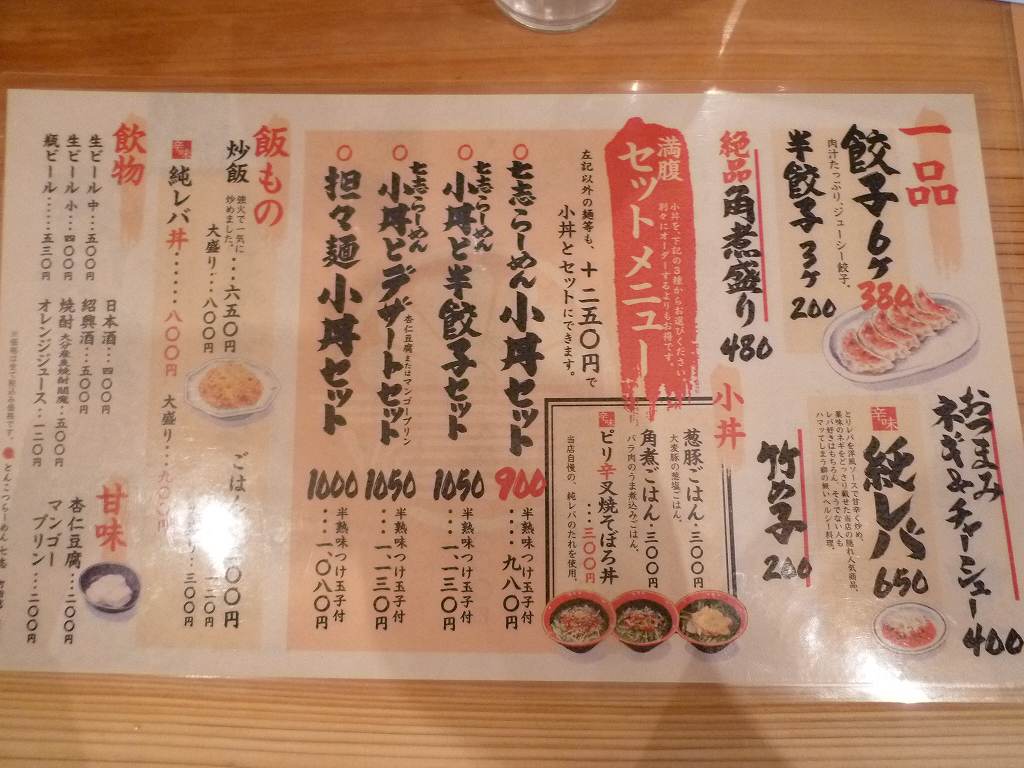 一品
餃子6ヶ
380
肉汁たっぷり、ジューシー餃子。
半餃子3ヶ
200
絶品角煮盛り
480
おつまみ
ネギ&チャーシュー
400
辛味
純レバ
650
とりレバを洋風ソースで甘辛く炒め、
薬味のネギをどっさり載せた当店の隠れ人気商品。
レバ好きはもちろん、そうでない人も
ハマッてしまう癖の無いヘルシー料理。
竹の子
200
満腹
セットメニュー
小丼を、下記の3種からお選びください
別々にオーダーするよりもお得です。
左記以外の麺等も、十二五〇円で
小丼とセットにできます。
小丼
葱豚ごはん・三〇〇円
大麦豚の葱塩ごはん。
角煮ごはん・三〇〇円
バラ肉のうま煮込みごはん。
辛味
ピリ辛叉焼そぼろ丼
…三〇〇円
当店自慢の、純レバのたれを使用。
〇七志らーめん小丼セット
900
半熟味つけ玉子付
…九八〇円
〇七志らーめん
小丼と半餃子セット
1050
半熟味つけ玉子付
…一、一三〇円
〇七志らーめん
小丼とデザートセット
杏仁豆腐またはマンゴープリン
1050
半熟味つけ玉子付
…一、一三〇円
〇担々麺小丼セット
1000
半熟味つけ玉子付
…一、〇八〇円
飯もの
炒飯
強火で一気に
炒めました。
…六五〇円
大盛り…八〇〇円
辛味
純レバ丼……八〇〇円
大盛り…九〇〇円
ごはん
三〇〇円
飲物
生ビール 中…五〇〇円
生ビール 小…四〇〇円
瓶ビール……五三〇円
日本酒…四〇〇円
紹興酒…五〇〇円
焼酎 大分産麦焼酎閻魔…五〇〇円
オレンジジュース…一二〇円
甘味
杏仁豆腐…二〇〇円
マンゴー
プリン…二〇〇円
※価格は全て税込み価格です。
とんこつらーめん 七志